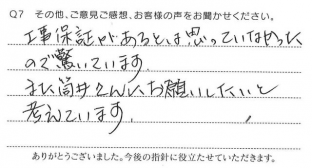 Q7 その他、ご意見ご感想、お客様の声をお聞かせください。
工事保証があるとは思っていなかった
ので驚いています。
また筒井さんにお願いしたいと
考えています。
ありがとうございました。今後の指針に役立たせていただきます。